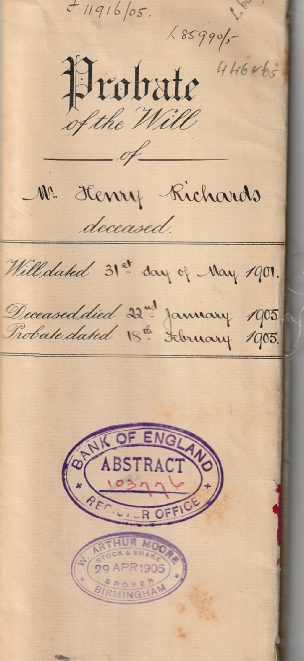 11916/05.
L85990/5
446465
Probate
of the Will
of
Mr. Henry Richards
deceased.
Will dated 31st day of May 1901.
Deceased died 22nd January 1905.
Probate dated 18th February 1905.
BANK OF ENGLAND
ABSTRACT
103776
REGISTER OFFICE
W. ARTHUR MOORE
STOCK & SHARE
29 APR 1905
BROKER
BIRMINGHAM